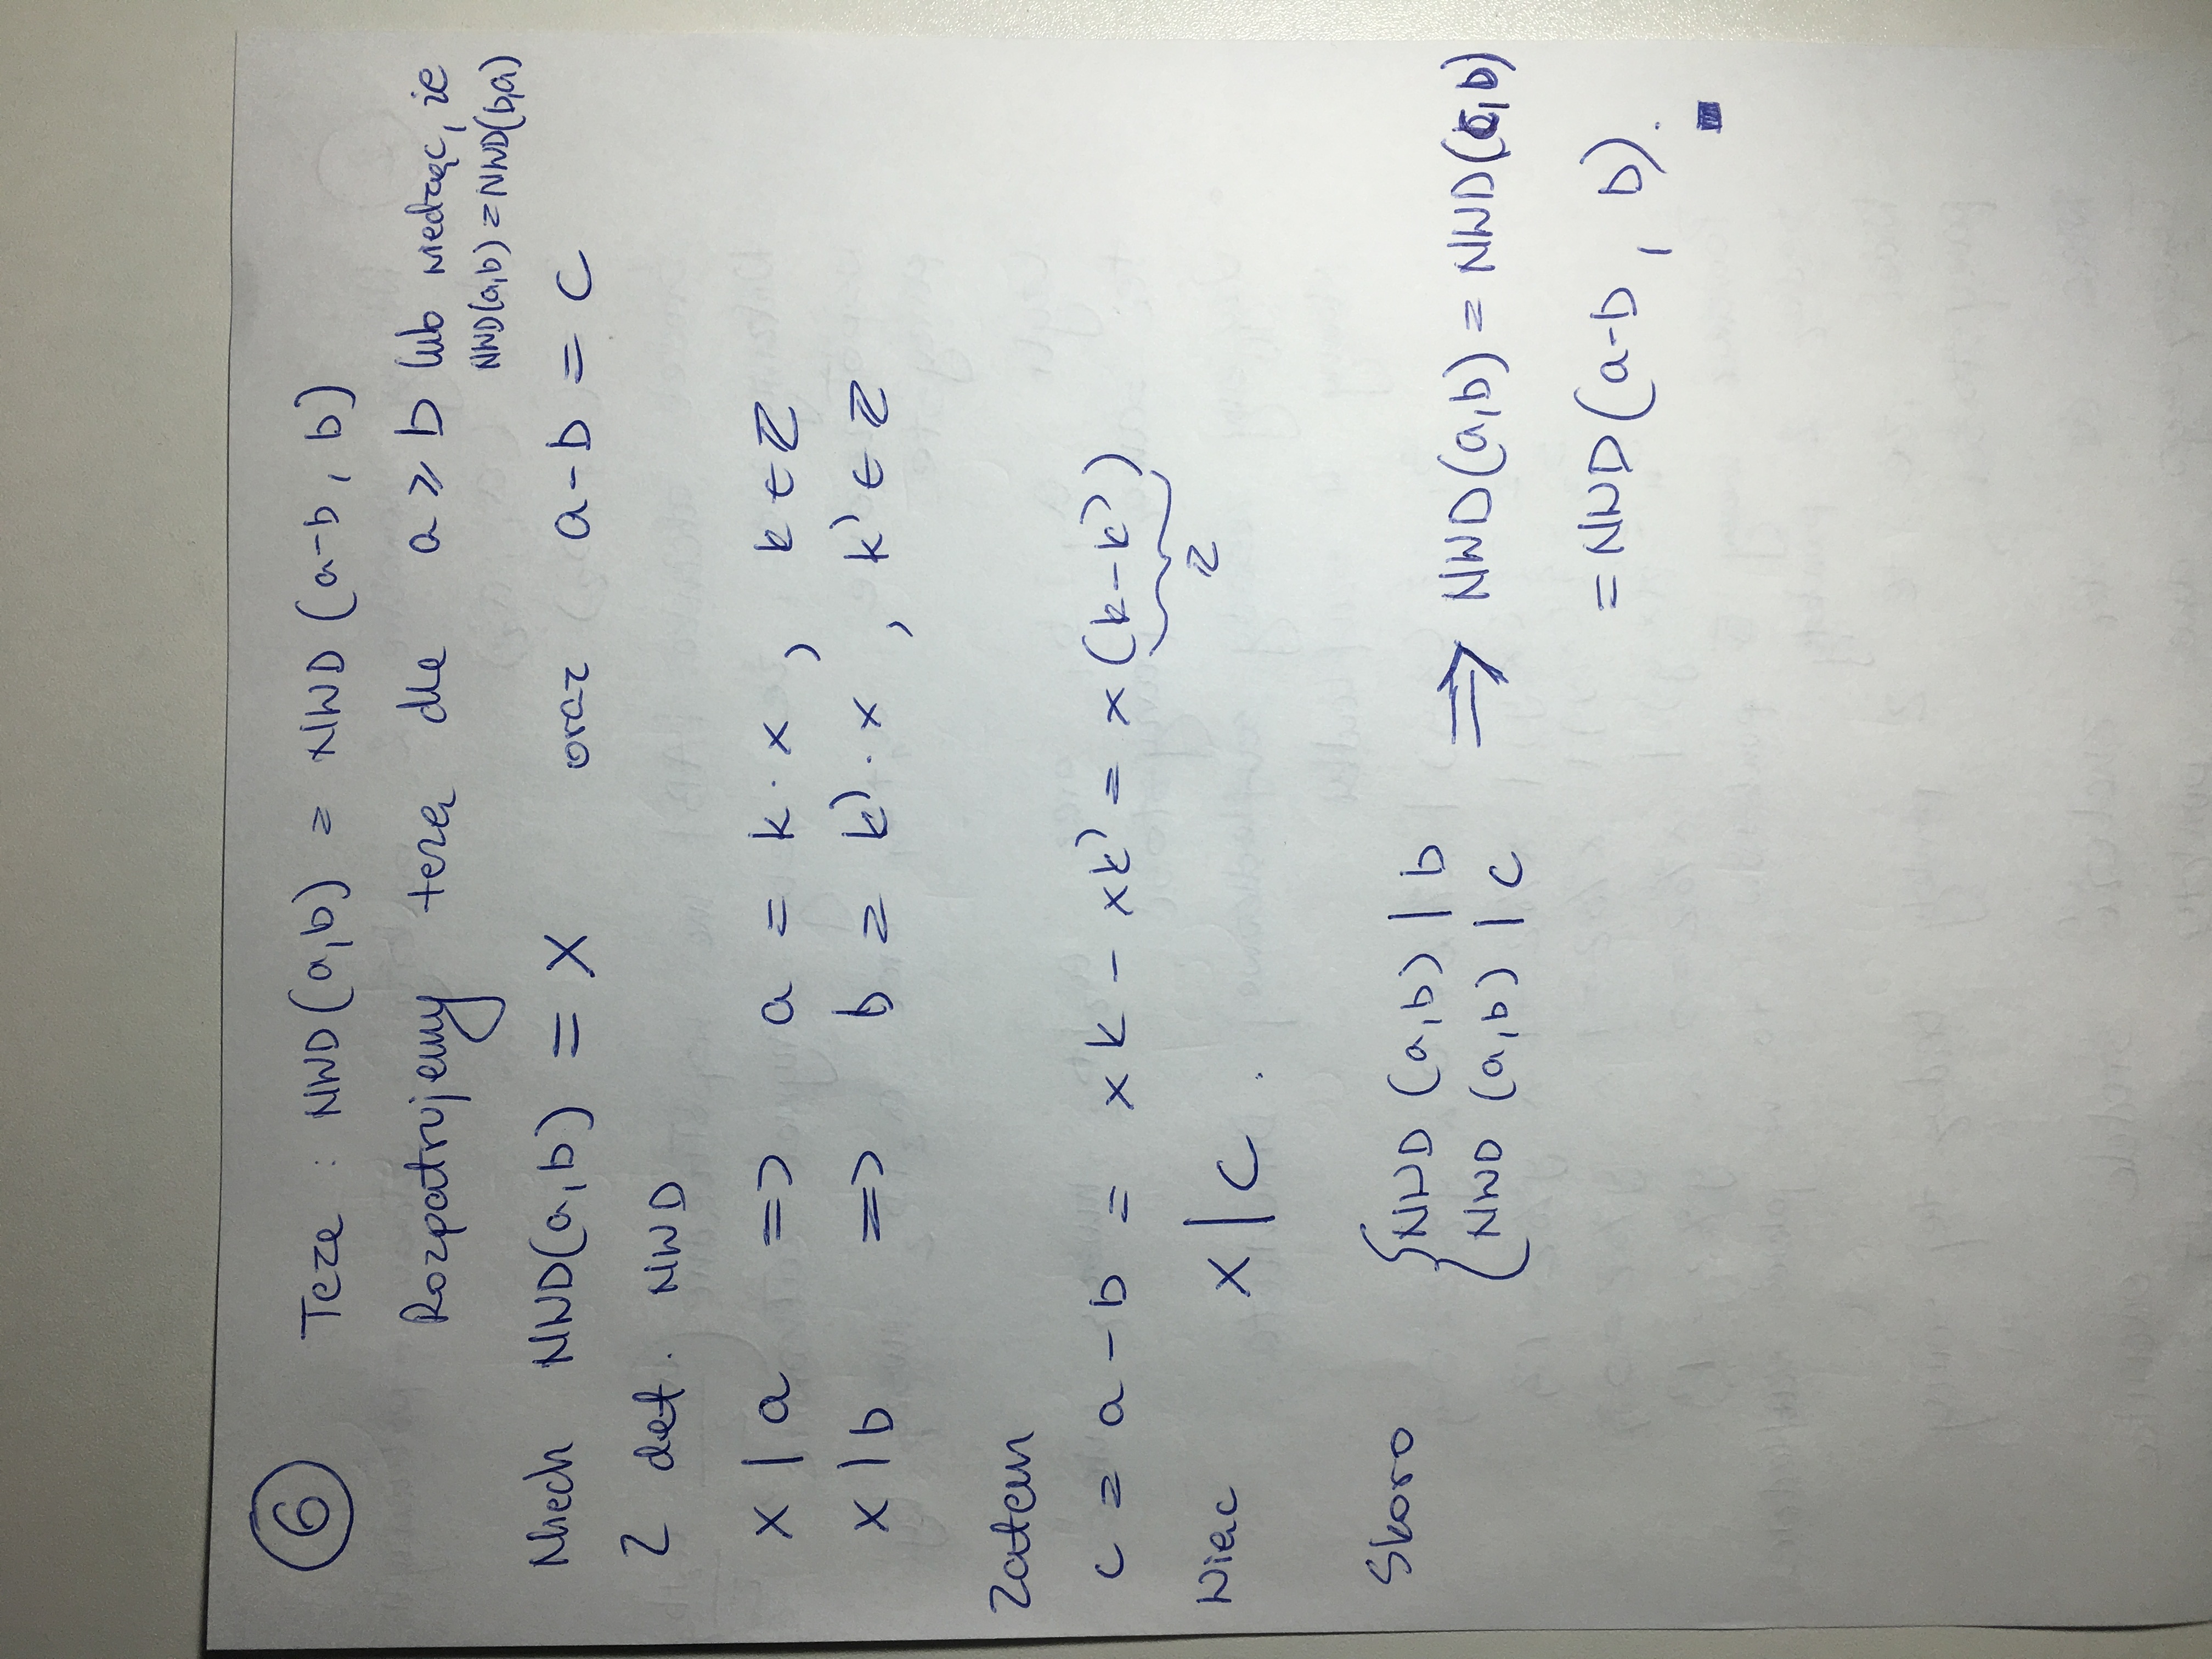 6 Teza : NWD(a,b) = NWD (a-b, b)
Rozpatrujemy tezę dla a ⩾ b lub wiedząc, że
NWD(a,b) = NWD(b,a)
Niech NWD(a,b) = x oraz a-b = c
Z def. NWD
x | a => a = k · x , k ∈ Z
x | b => b = k' · x , k' ∈ Z
Zatem
c = a - b = xk - xk' = x (k-k')
Z
Więc x | c .
Skoro { NWD (a,b) | b
NWD (a,b) | c
=> NWD(a,b) = NWD(c,b)
= NWD (a-b , b).
■